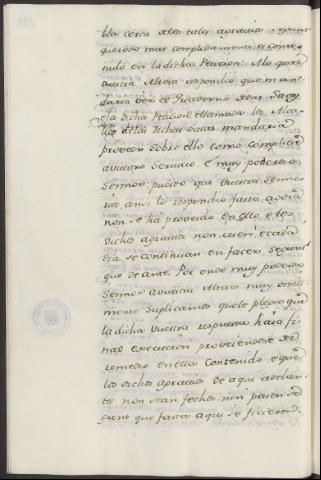 bla cerca delos tales agravios segunt
queësto mas complidamente es conte-
nido en la dicha Peticion: Alo qual
Vuestra Alteza respondio que man-
daria ver el Quaderno de las
e la dicha Peticion e llamados los Alca-
des delas dichas sacas mandaria
proveer sobre ello como compliese
a vuestro servicio. E muy poderoso
Señor puesto que Vuestra Seño-
ria ansi lo respondio fasta agora
non se há proveido en ello, e los
dichos agravios non cesan, e cada
dia se continuan en facer segunt
que de antes. Por ende muy poderoso
Señor a vuestra Alteza muy omill-
mente suplicamos quele plega que
la dicha vuestra respuesta haia fi-
nal execucion proveiendose de
remedio en ella contenido, e que
los dichos agravios de aqui adelan-
te non sean fechos nin pasen se-
gunt que fasta aqui se ficieron.